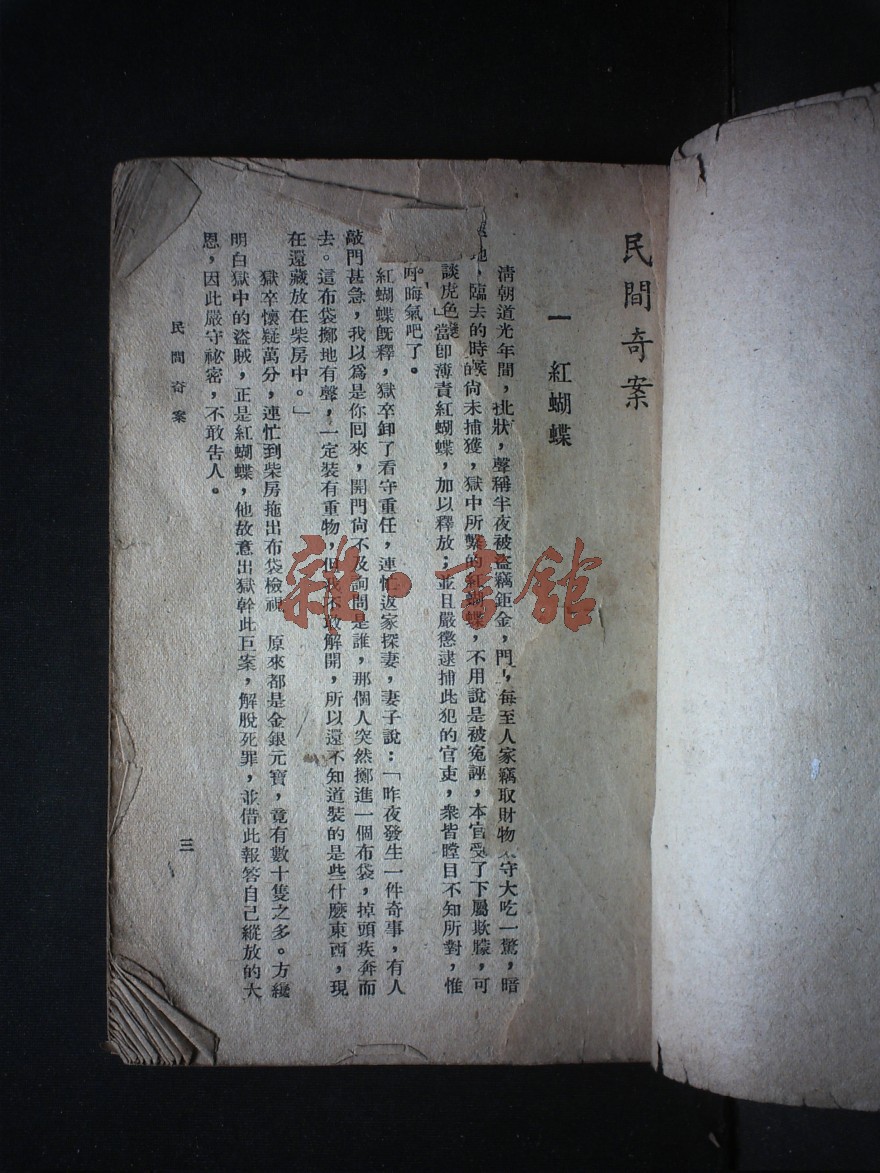 民間奇案
一 紅蝴蝶
清朝道光年間，北狀，聲稱半夜被盜竊鉅金，門，每至人家竊取財物
守大吃一驚，暗
地，臨去的時候的尚未捕獲，獄中所繫的紅蝴蝶，不用說是被冤誣，本官受了下屬欺矇，可
談虎色
」當即薄責紅蝴蝶，加以釋放；並且嚴懲逮捕此犯的官吏，衆皆瞠目不知所對，惟
呼晦氣吧了。
紅蝴蝶旣釋，獄卒卸了看守重任，連忙返家探妻，妻子說：「昨夜發生一件奇事，有人
敲門甚急，我以爲是你回來，開門尚不及詢問是誰，那個人突然擲進一個布袋，掉頭疾奔而
去。這布袋擲地有聲，一定裝有重物，但我不敢解開，所以還不知道裝的是些什麽東西，現
在還藏放在柴房中。」
獄卒懷疑萬分，連忙到柴房拖出布袋檢視 原來都是金銀元寶，竟有數十隻之多。方纔
明白獄中的盜賊，正是紅蝴蝶，他故意出獄幹此巨案，解脫死罪，並借此報答自己縱放的大
恩，因此嚴守祕密，不敢告人。
民間奇案
三
雜·書館